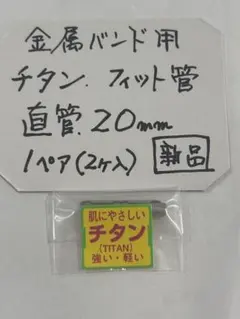 金属バンド用
チタン.フィット管
直管.20mm
1ペア(2ヶ入) 新品
肌にやさしい
チタン
(TITAN)
強い・軽い